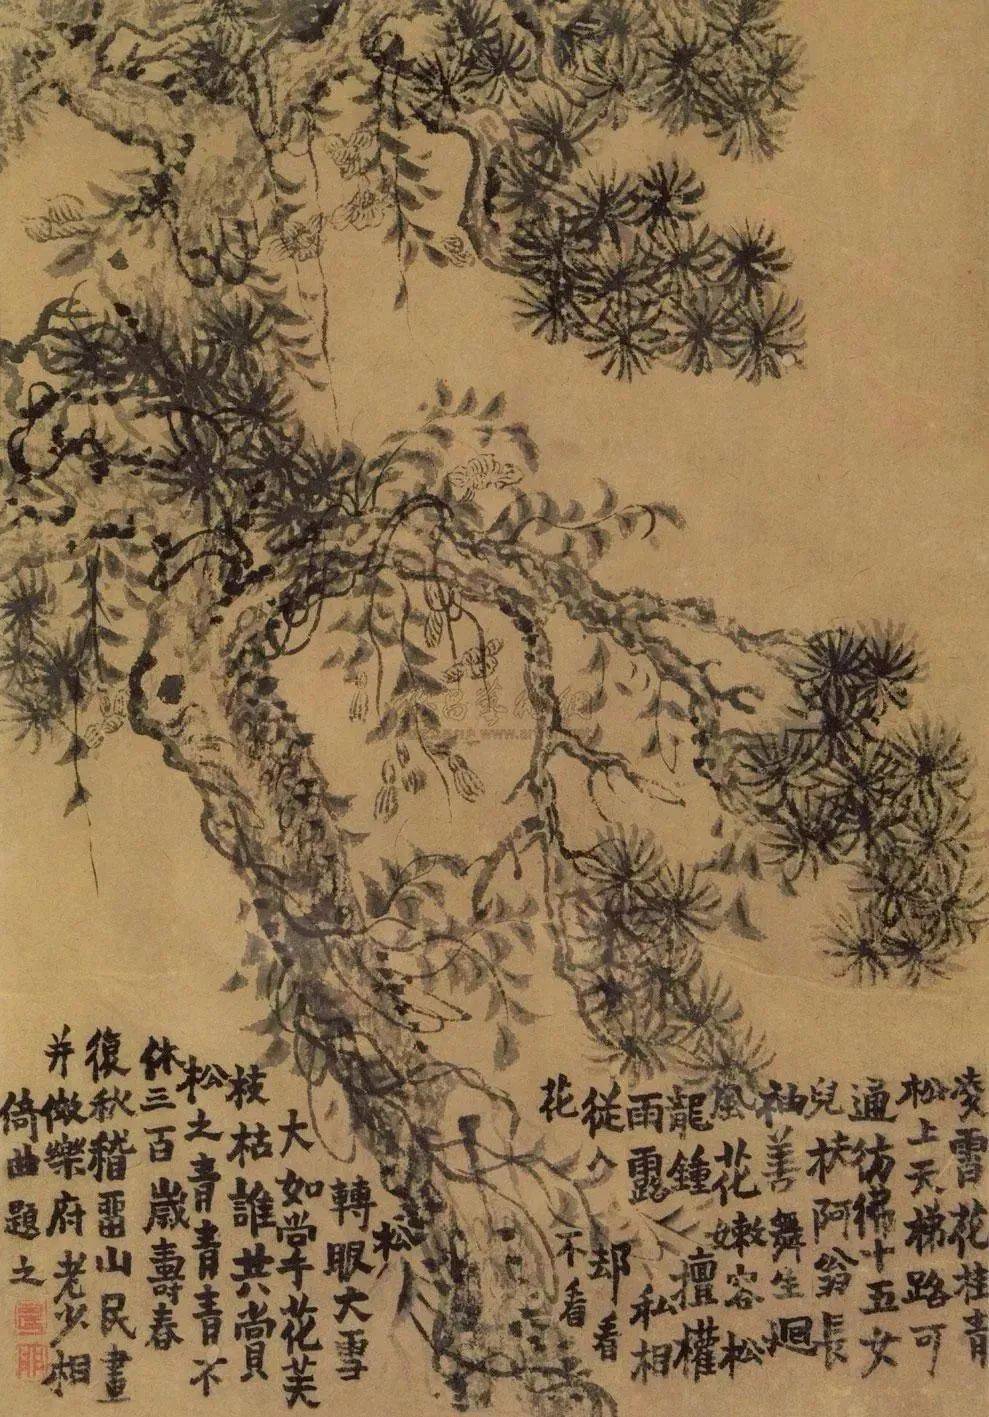 凌霄花挂青
松上天梯路可
通彷彿十五女
兒扶阿翁長
袖善舞生迴
風花嫩容松
龍鍾擅權
雨露私相
從人却看
花不看
松
轉眼大雪
大如掌花
枝枯誰共賞
松之青青青不
休三百歲壽春
復秋稽畱山民畫
并倣樂府老少相
倚曲題之